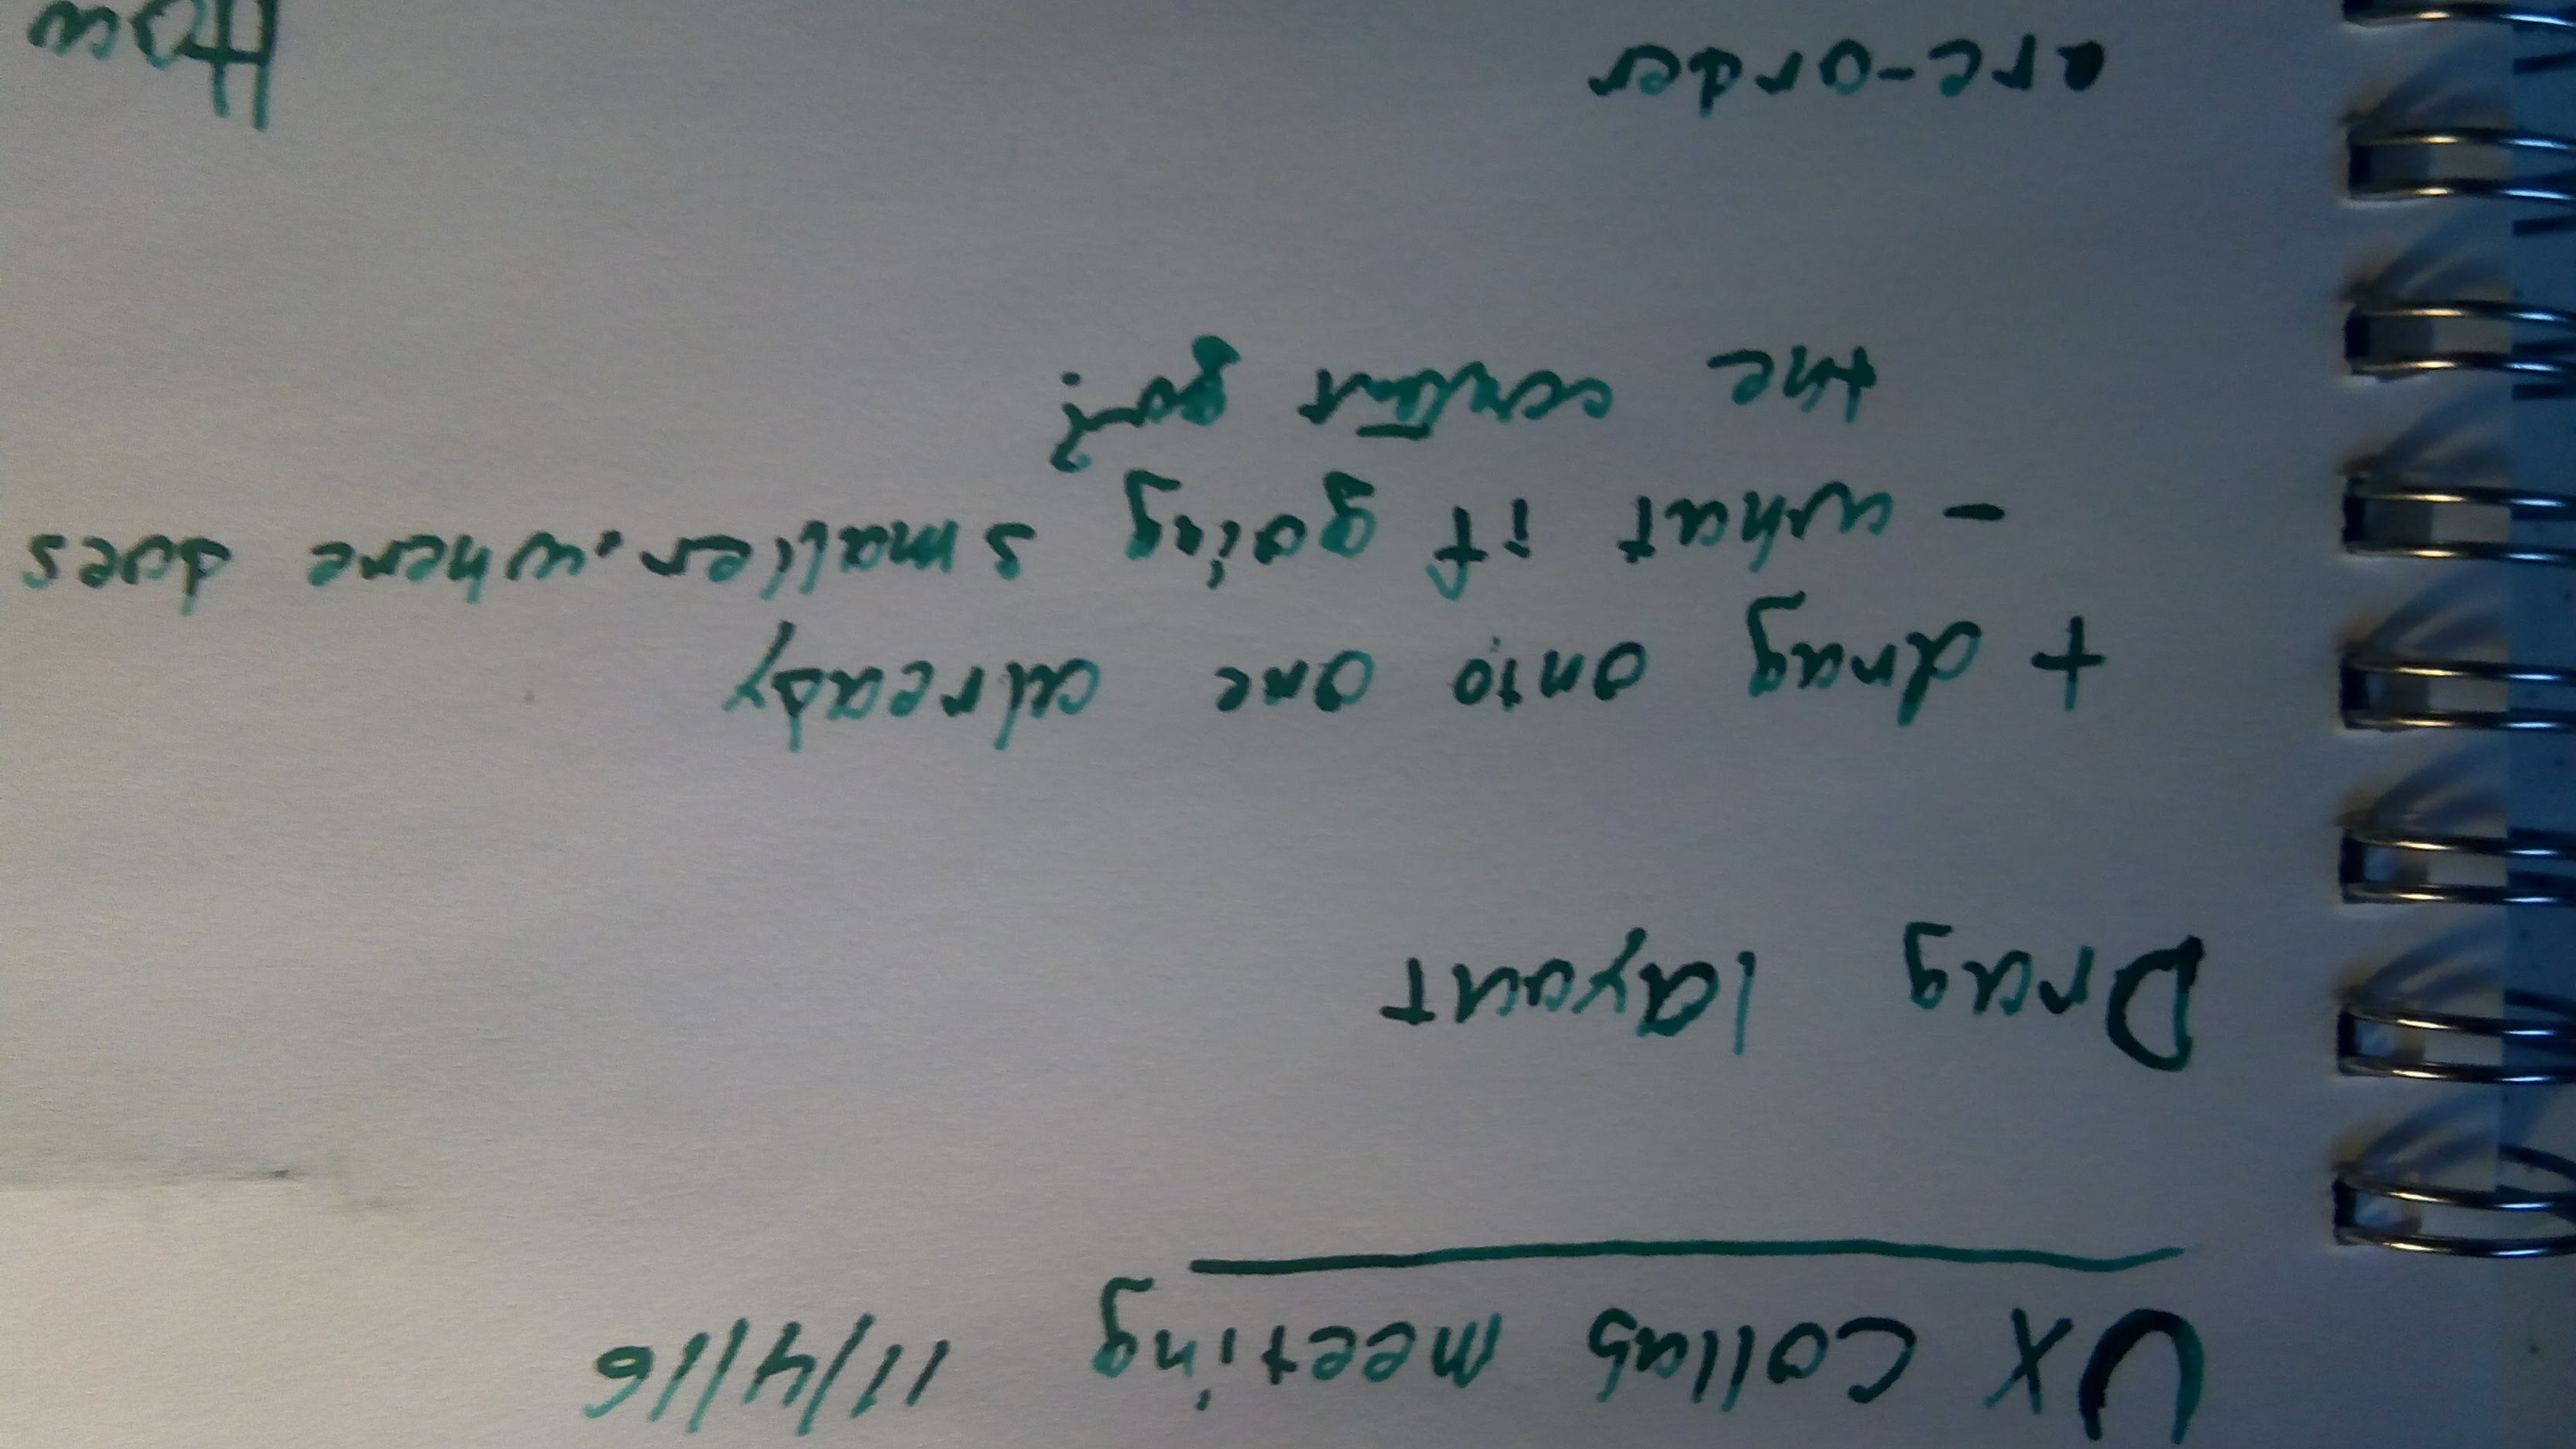 UX collab meeting 11/4/16
Drag layout
+ drag onto one already
- what if going smaller. where does
the content go?
• re-order How